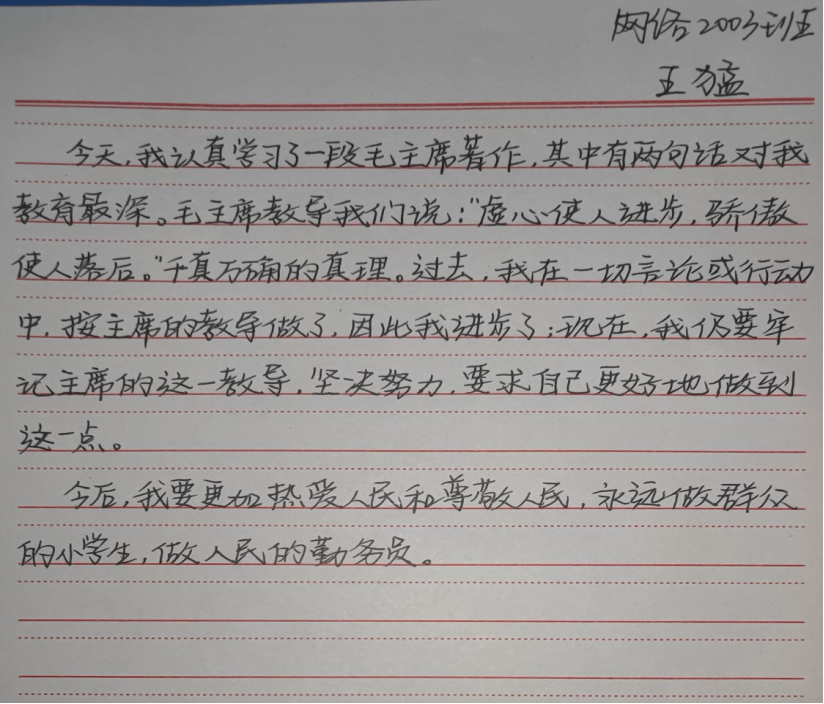 网络2003班
王猛
今天,我认真学习了一段毛主席著作,其中有两句话对我
教育最深。毛主席教导我们说:"虚心使人进步,骄傲
使人落后。"千真万确的真理。过去,我在一切言论或行动
中,按主席的教导做了,因此我进步了;现在,我仍要牢
记主席的这一教导,坚决努力,要求自己更好地做到
这一点。
今后,我要更加热爱人民和尊敬人民,永远做群众
的小学生,做人民的勤务员。